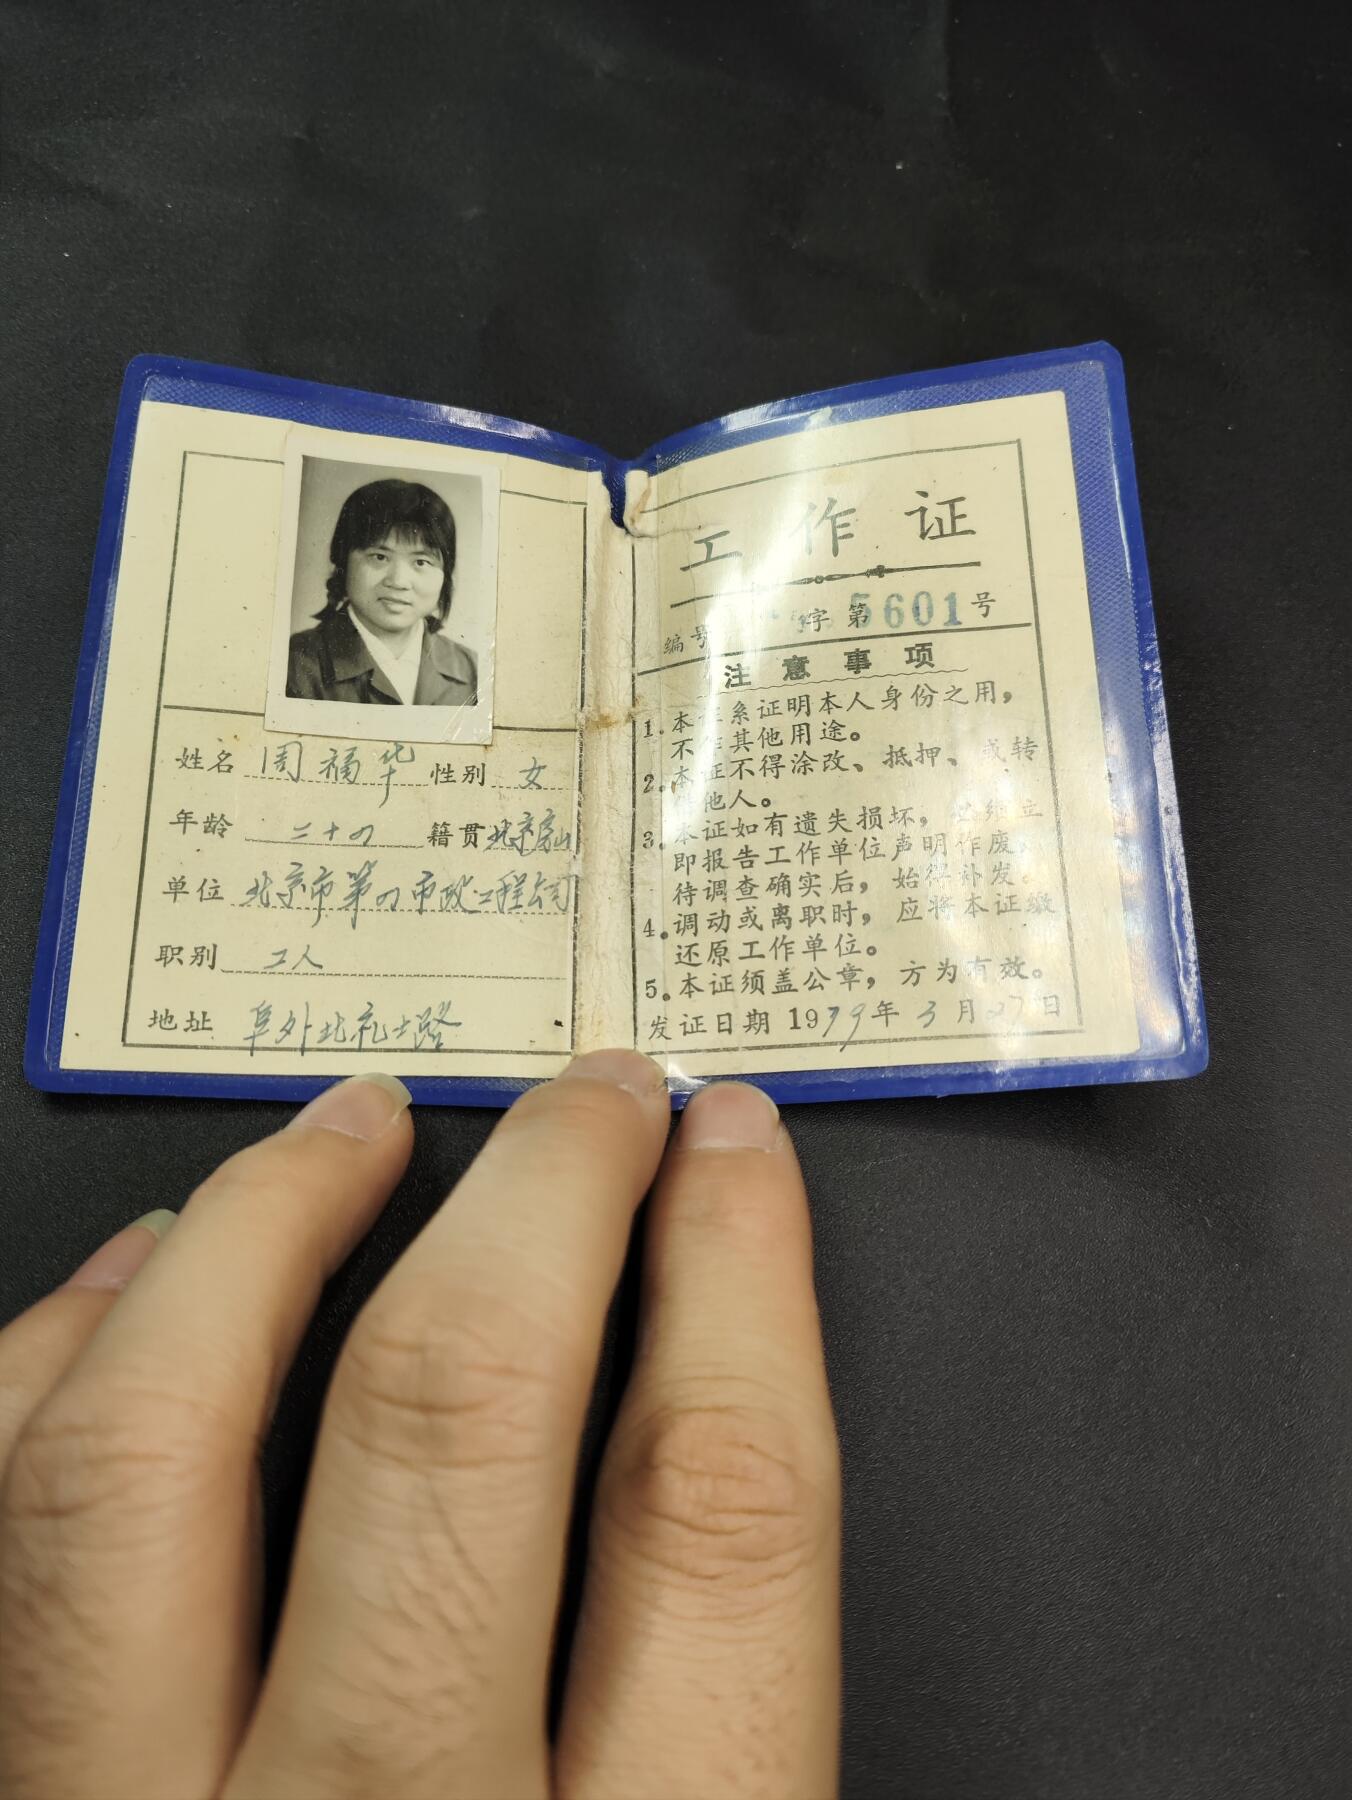 姓名 周福华 性别 女
年龄 二十四 籍贯 北京房山
单位 北京市第四市政工程公司
职别 工人
地址 阜外北礼士路
工作证
编号 字第5601号
注意事项
1. 本证系证明本人身份之用，
不作其他用途。
2. 本证不得涂改、抵押、或转
他人。
3. 本证如有遗失损坏，必须立
即报告工作单位声明作废，
待调查确实后，始得补发。
4. 调动或离职时，应将本证缴
还原工作单位。
5. 本证须盖公章，方为有效。
发证日期 1979年3月27日